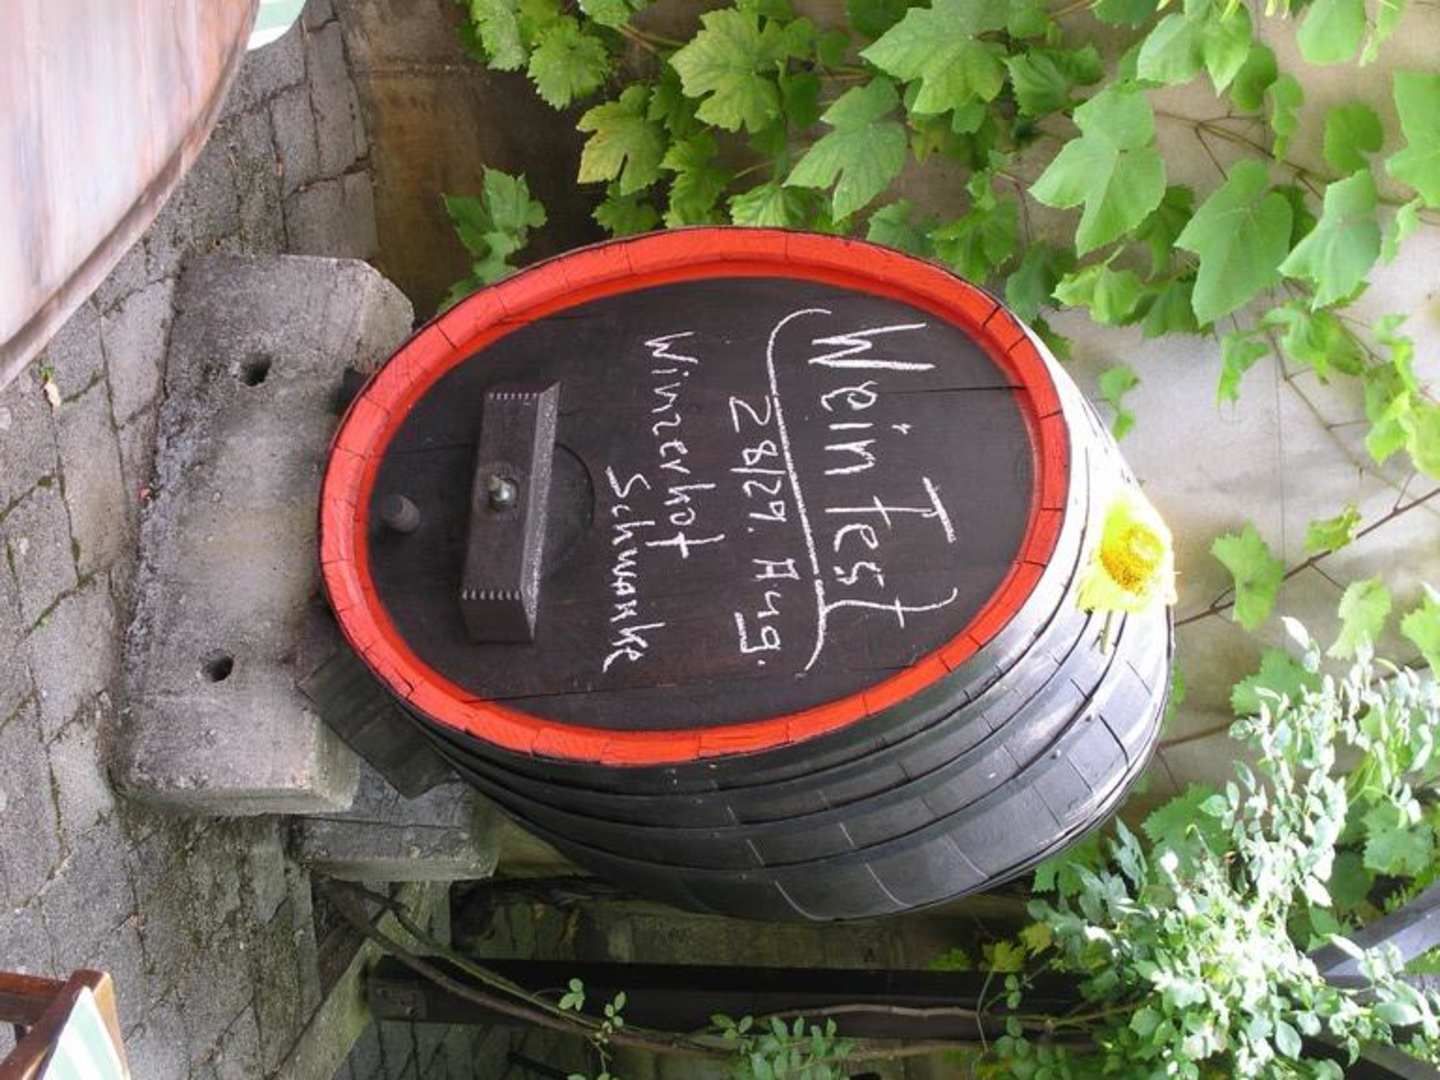 Wein Fest
28/29. Aug.
Winzerhof
Schwanke